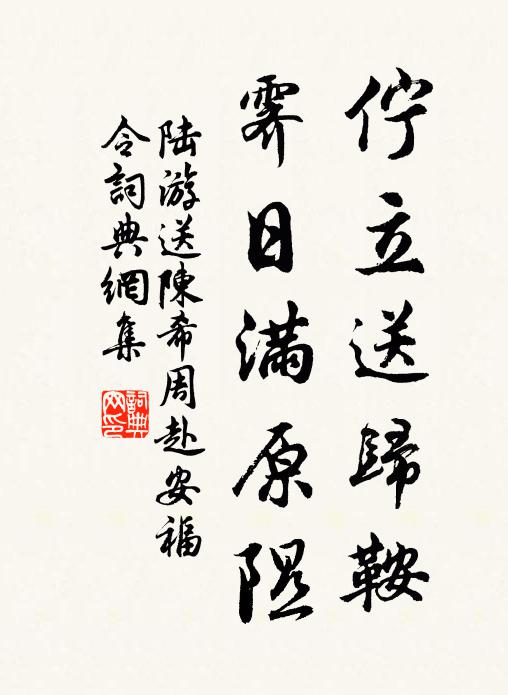 佇立送歸鞍
霽日滿原隰
陸游送陳希周赴安福
令詞典網集
詞典网印